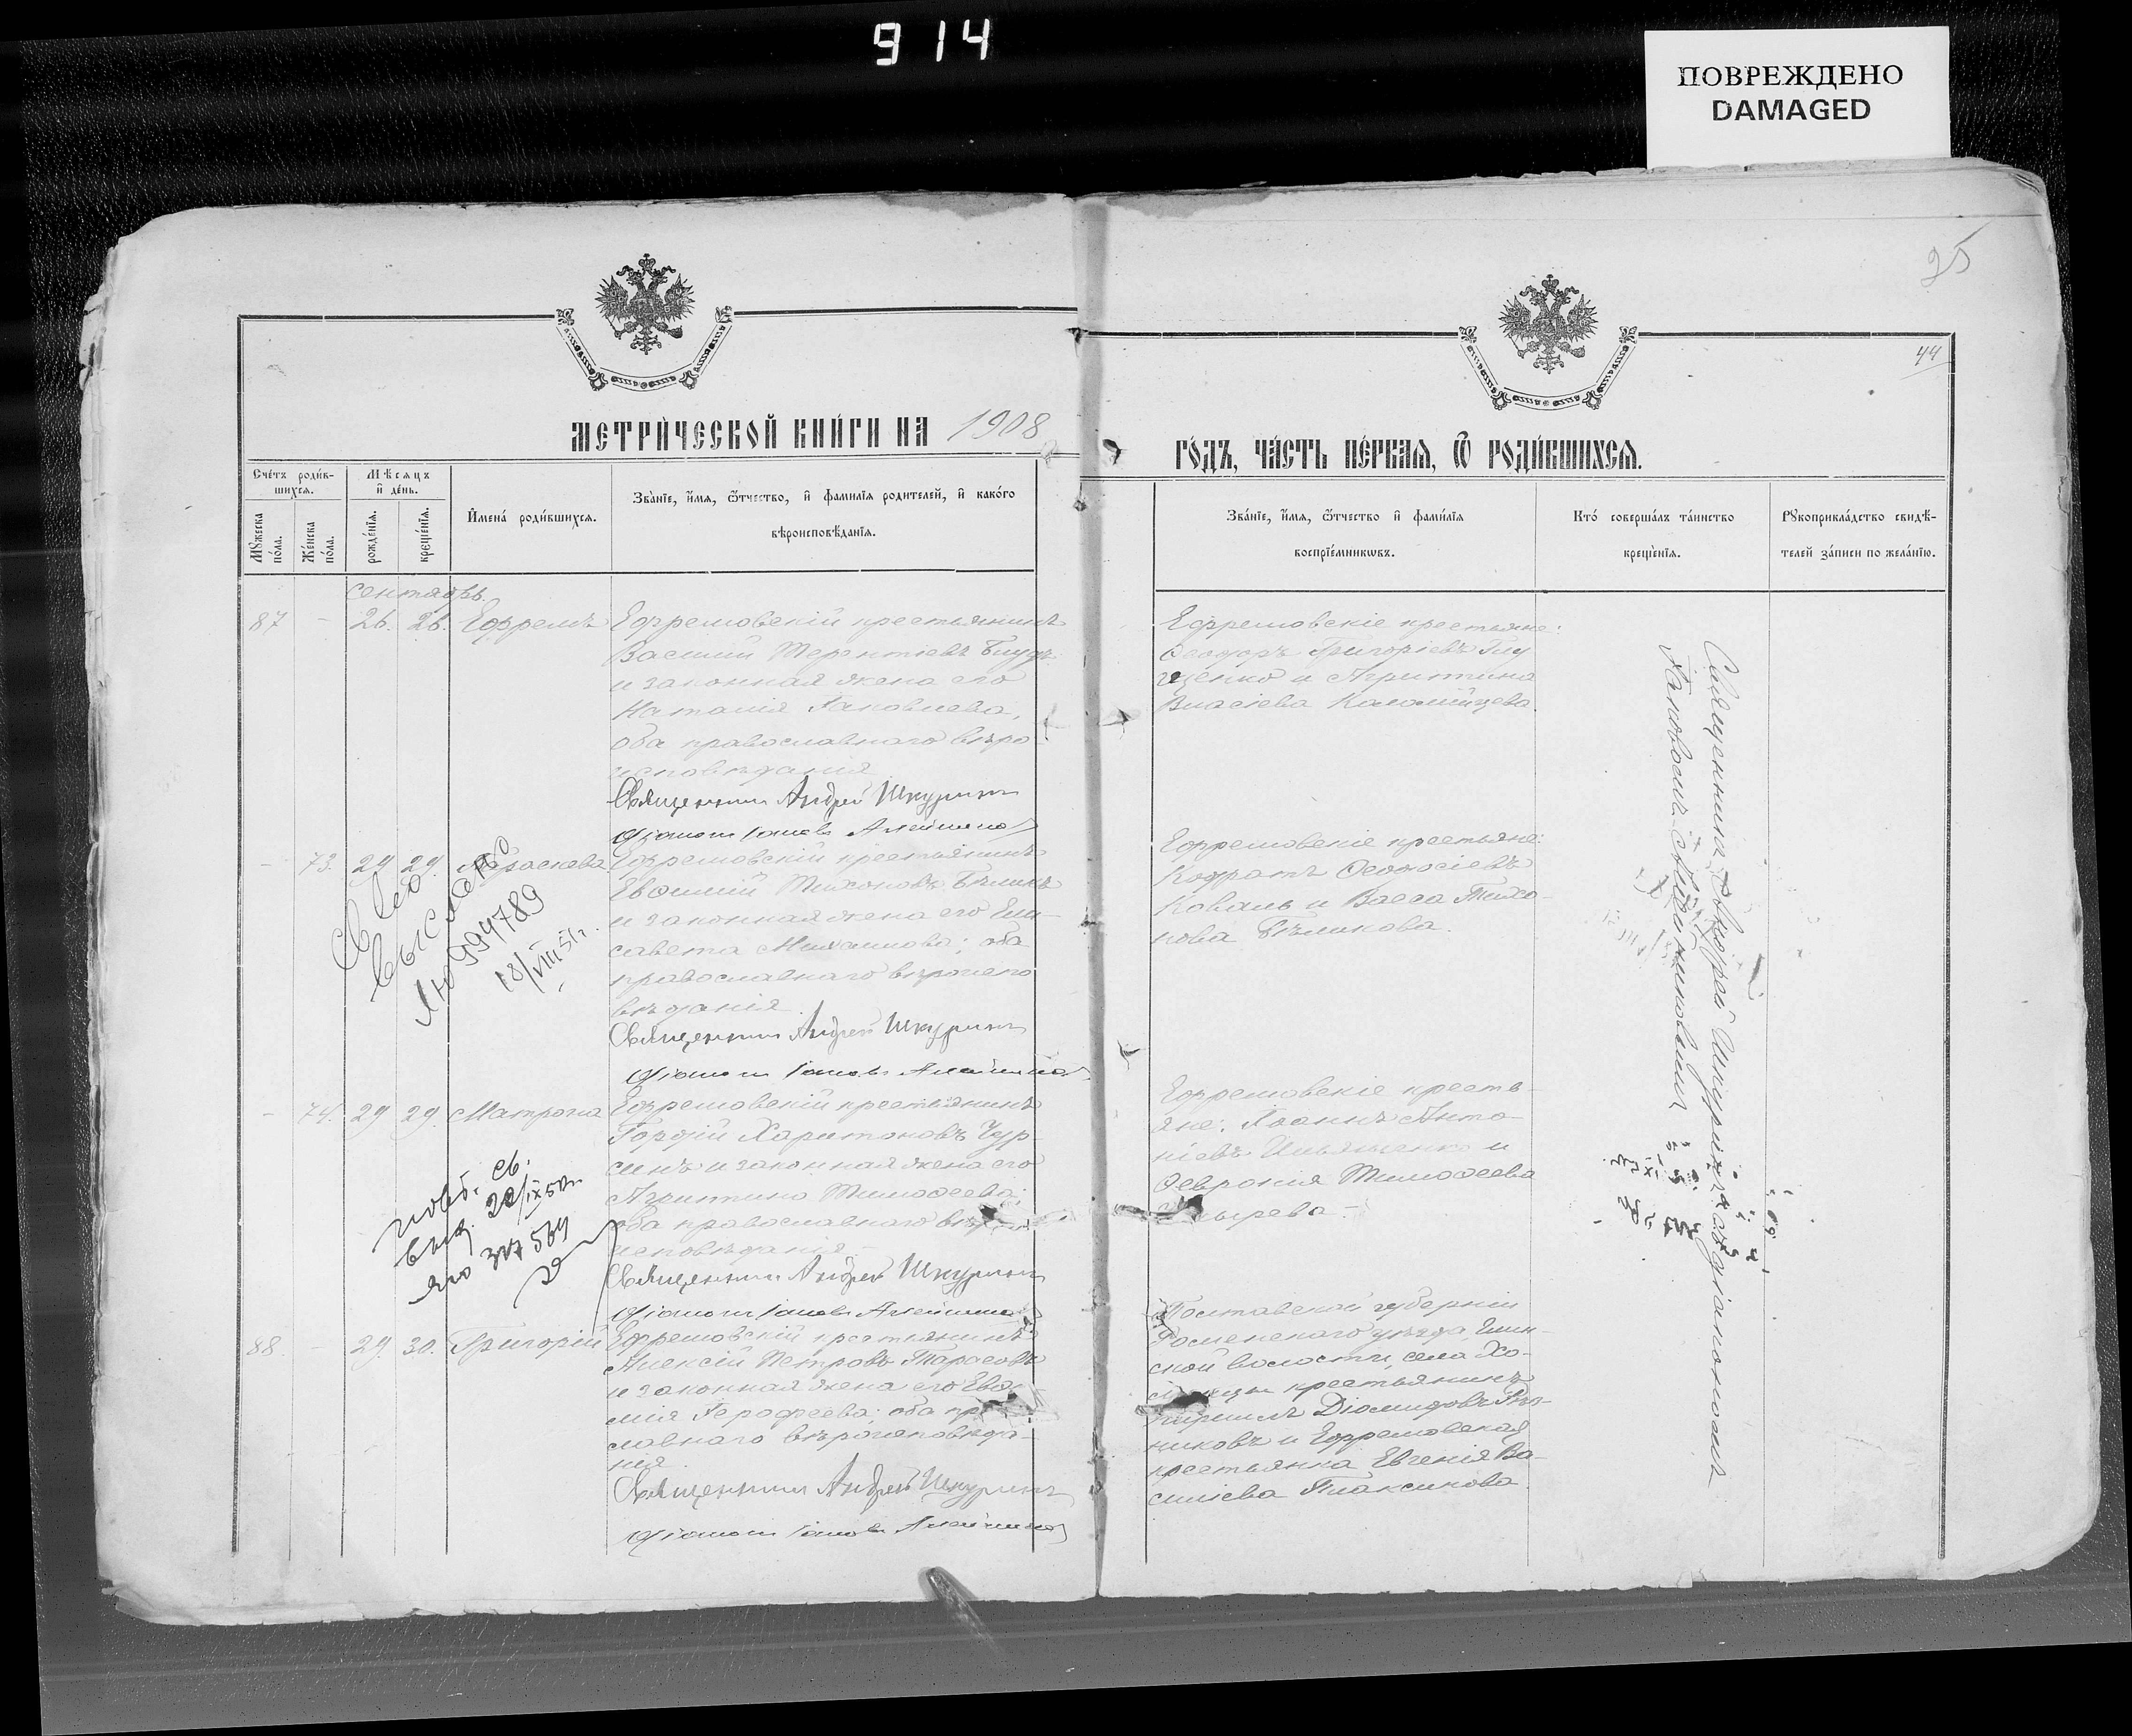 914
ПОВРЕЖДЕНО
DAMAGED
95
44
МЕТРИ́ЧЕСКОЙ КНИ́ГИ НА 1908
ГО́ДЪ, ЧА́СТЬ ПЕ́РВАЯ, Ѽ РОДИ́ВШИХСЯ.
Сче́тъ роди́в-
шихся.
Мужеска по́ла.
Же́нска по́ла.
Мѣсяцъ
и де́нь.
рожде́нїя.
креще́нїя.
Имена́ роди́вшихся.
Зва́нїе, и́мя, ѻ́тчество, и фами́лїя роди́телей, и како́го
вѣроисповѣ́данїя.
Зва́нїе, и́мя, ѻ́тчество и фами́лїя
воспрїе́мникѡвъ.
Кто́ соверша́лъ та́инство
креще́нїя.
Рукоприкла́дство свидѣ́-
телей за́писи по жела́нїю.
сентябрь.
87 - 26. 26. Ефремъ
Ефремовскій крестьянинъ
Василій Терентіевъ
и законная жена его
Наталія Іаковлева,
оба православнаго вѣро-
исповѣданія
Священникъ Андрей Шкуринъ
Діаконъ Іаковъ
Ефремовскіе крестьяне:
Ѳеодоръ Григоріевъ Глу
щенко и Агриппина
Власіева Коломійцева.
- 73. 29 29. Параскева
Ефремовскій крестьянинъ
Евѳимій Тихоновъ Бѣликъ
и законная жена его Ели-
савета Михаилова; оба
православнаго вѣроиспо
вѣданія.
Священникъ Андрей Шкуринъ
Діаконъ Іаковъ
Св-во
выслано
Яю 994789
18/VIII 51г.
Ефремовскіе крестьяне:
Кодратъ Ѳеодосіевъ
Коваль и Васса Тихо-
нова Бѣликова.
- 74. 29 29. Матрона
Ефремовскій крестьянинъ
Гордій Харитоновъ Чур-
синъ и законная жена его
Агриппина Тимоѳеева;
оба православнаго вѣро
исповѣданія.-
Священникъ Андрей Шкуринъ
Діаконъ Іаковъ
повт. св.
выд. 22/IX 50г.
яю 317569
Ефремовскіе кресть-
яне: Іоаннъ Анто-
ніевъ Ильяшенко и
Ѳеврonія Тимоѳеева
88. - 29. 30. Григорій
Ефремовскій крестьянинъ
Алексій Петровъ Тарасовъ
и законная жена его Евѳи-
мія Іероѳеева; оба пра
славнаго вѣроисповѣда-
нія.
Священникъ Андрей Шкуринъ
Діаконъ Іаковъ
Полтавской губерніи
Роменскаго уѣзда,
ской волости, села
крестьянинъ
Кириллъ Діомидовъ
никовъ и Ефремовская
крестьянка Евгенія Ва-
силіева Плаксикова.
Священникъ Андрей Шкуринъ съ діакономъ
Іаковомъ